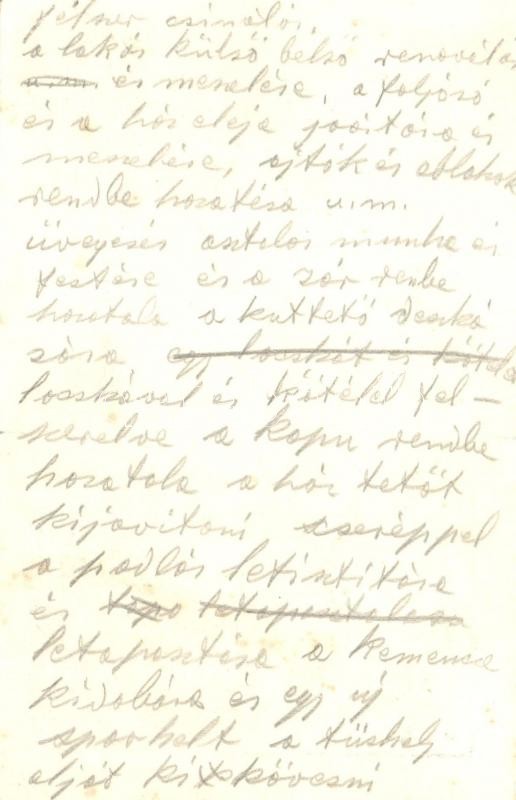 félszer csinálás,
a lakás külső belső renoválás
és meszelése, a foljósó
és a ház eleje javítása és
meszelése, ajtók és ablakok
rendbe hozatása u.m.
üvegezés asztalos munka és
festése és a zár renbe
hozatala a kuttető deszká
zása egy locskát és kötelet
locskával és kötéllel fel-
szerelve a kapu rendbe
hozatala a ház tetőt
kijavitani cseréppel
a padlás letisztitása
és letapasztalasa
letapasztása a kemence
kidobása és egy új
sporhelt a tüshelj
alját kikövezni